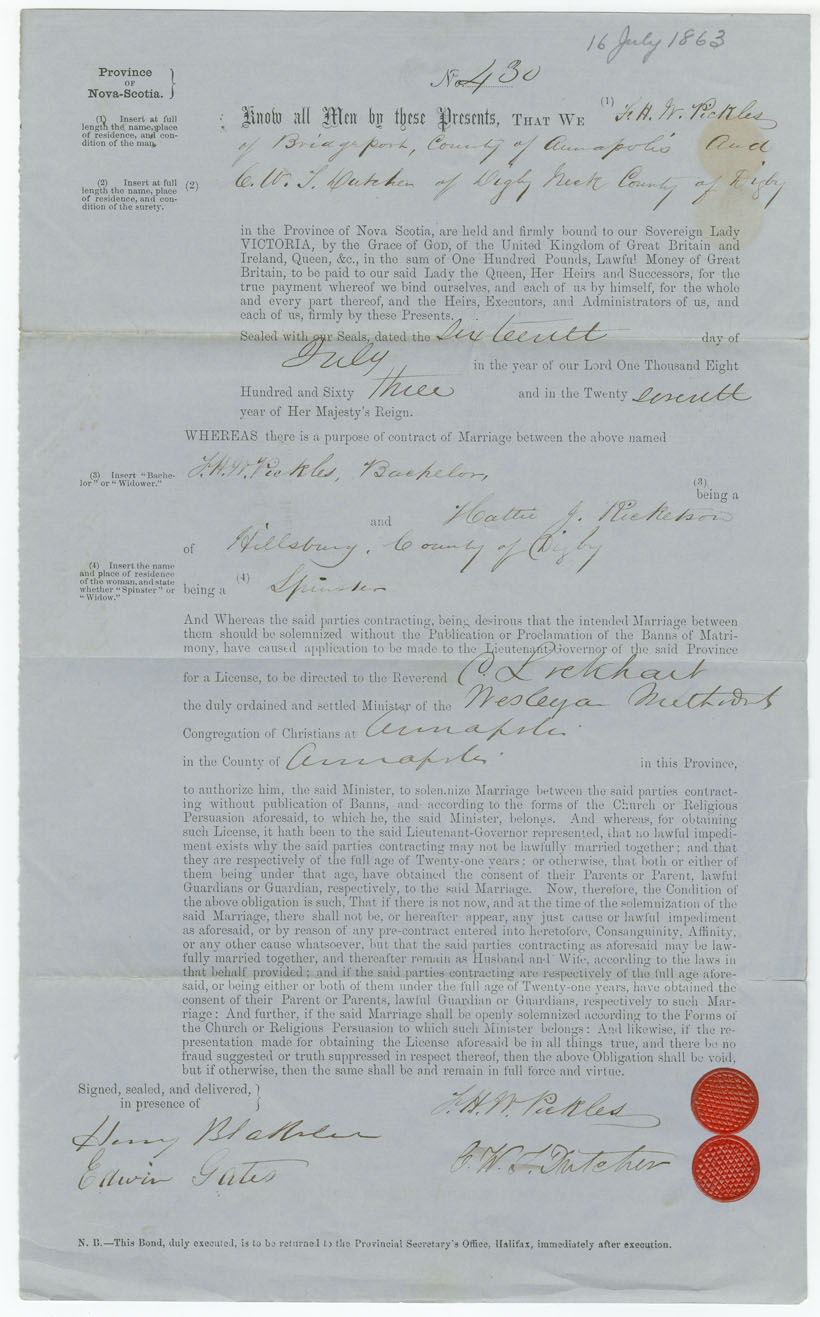 16 July 1863
Province
OF
Nova-Scotia.
No. 430
(1) Insert at full
length the name, place
of residence, and con-
dition of the man.
Know all Men by these Presents, THAT WE (1) F. H. W. Pickles
of Bridgeport, County of Annapolis And
(2) Insert at full
length the name, place
of residence, and con-
dition of the surety.
(2) C. W. T. Dutcher of Digby Neck County of Digby
in the Province of Nova Scotia, are held and firmly bound to our Sovereign Lady
VICTORIA, by the Grace of GOD, of the United Kingdom of Great Britain and
Ireland, Queen, &c., in the sum of One Hundred Pounds, Lawful Money of Great
Britain, to be paid to our said Lady the Queen, Her Heirs and Successors, for the
true payment whereof we bind ourselves, and each of us by himself, for the whole
and every part thereof, and the Heirs, Executors, and Administrators of us, and
each of us, firmly by these Presents.
Sealed with our Seals, dated the Sixteenth day of
July in the year of our Lord One Thousand Eight
Hundred and Sixty three and in the Twenty seventh
year of Her Majesty's Reign.
WHEREAS there is a purpose of contract of Marriage between the above named
(3) Insert "Bache-
lor" or "Widower."
F. H. W. Pickles, Bachelor,
(3)
being a
and Hattie J. Ricketson
of Hillsburg, County of Digby
(4) Insert the name
and place of residence
of the woman, and state
whether "Spinster" or
"Widow."
being a (4) Spinster
And Whereas the said parties contracting, being desirous that the intended Marriage between
them should be solemnized without the Publication or Proclamation of the Banns of Matri-
mony, have caused application to be made to the Lieutenant Governor of the said Province
for a License, to be directed to the Reverend C. Lockhart
the duly ordained and settled Minister of the Wesleyan Methodist
Congregation of Christians at Annapolis
in the County of Annapolis in this Province,
to authorize him, the said Minister, to solemnize Marriage between the said parties contract-
ing without publication of Banns, and according to the forms of the Church or Religious
Persuasion aforesaid, to which he, the said Minister, belongs. And whereas, for obtaining
such License, it hath been to the said Lieutenant-Governor represented, that no lawful impedi-
ment exists why the said parties contracting may not be lawfully married together; and that
they are respectively of the full age of Twenty-one years: or otherwise, that both or either of
them being under that age, have obtained the consent of their Parents or Parent, lawful
Guardians or Guardian, respectively, to the said Marriage. Now, therefore, the Condition of
the above obligation is such, That if there is not now, and at the time of the solemnization of the
said Marriage, there shall not be, or hereafter appear, any just cause or lawful impediment
as aforesaid, or by reason of any pre-contract entered into heretofore, Consanguinity, Affinity,
or any other cause whatsoever, but that the said parties contracting as aforesaid may be law-
fully married together, and thereafter remain as Husband and Wife, according to the laws in
that behalf provided; and if the said parties contracting are respectively of the full age afore-
said, or being either or both of them under the full age of Twenty-one years, have obtained the
consent of their Parent or Parents, lawful Guardian or Guardians, respectively to such Mar-
riage: And further, if the said Marriage shall be openly solemnized according to the Forms of
the Church or Religious Persuasion to which such Minister belongs: And likewise, if the re-
presentation made for obtaining the License aforesaid be in all things true, and there be no
fraud suggested or truth suppressed in respect thereof, then the above Obligation shall be void,
but if otherwise, then the same shall be and remain in full force and virtue.
Signed, sealed, and delivered,
in presence of
F. H. W. Pickles
Henry
Edwin Gates
C. W. T. Dutcher
N. B.—This Bond, duly executed, is to be returned to the Provincial Secretary's Office, Halifax, immediately after execution.